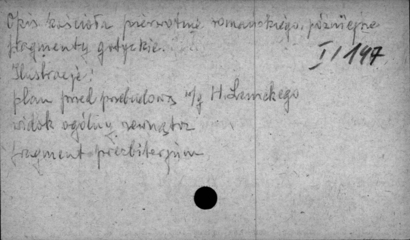 Opis kościoła pierwotnie romańskiego, późniejsze
fragmenty gotyckie.
I/147
Ilustracje:
plan przed przebudową w/g H. Lemckego
widok ogólny zewnątrz
fragment prezbiterjum